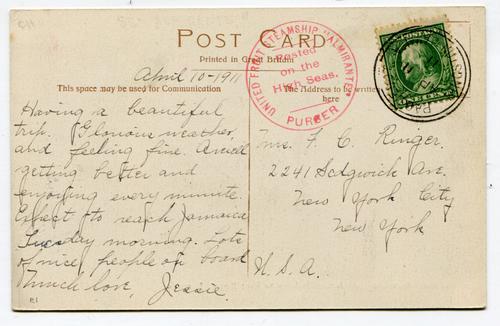 POST CARD
Printed in Great Britain
UNITED FRUIT STEAMSHIP "ALMIRANTE"
Posted
on the
High Seas.
PURSER
ONE CENT
April 10 - 1911
This space may be used for Communication
The Address to be written
here
Having a beautiful
trip. Glorious weather,
and feeling fine. Arwell
getting better and
enjoying every minute.
Expect to reach Jamaica
Tuesday morning. Lots
of nice people on board
Much love, Jessie.
Mrs. F. C. Ringer.
2241 Sedgwick Ave.
New York City
New York
U. S. A.